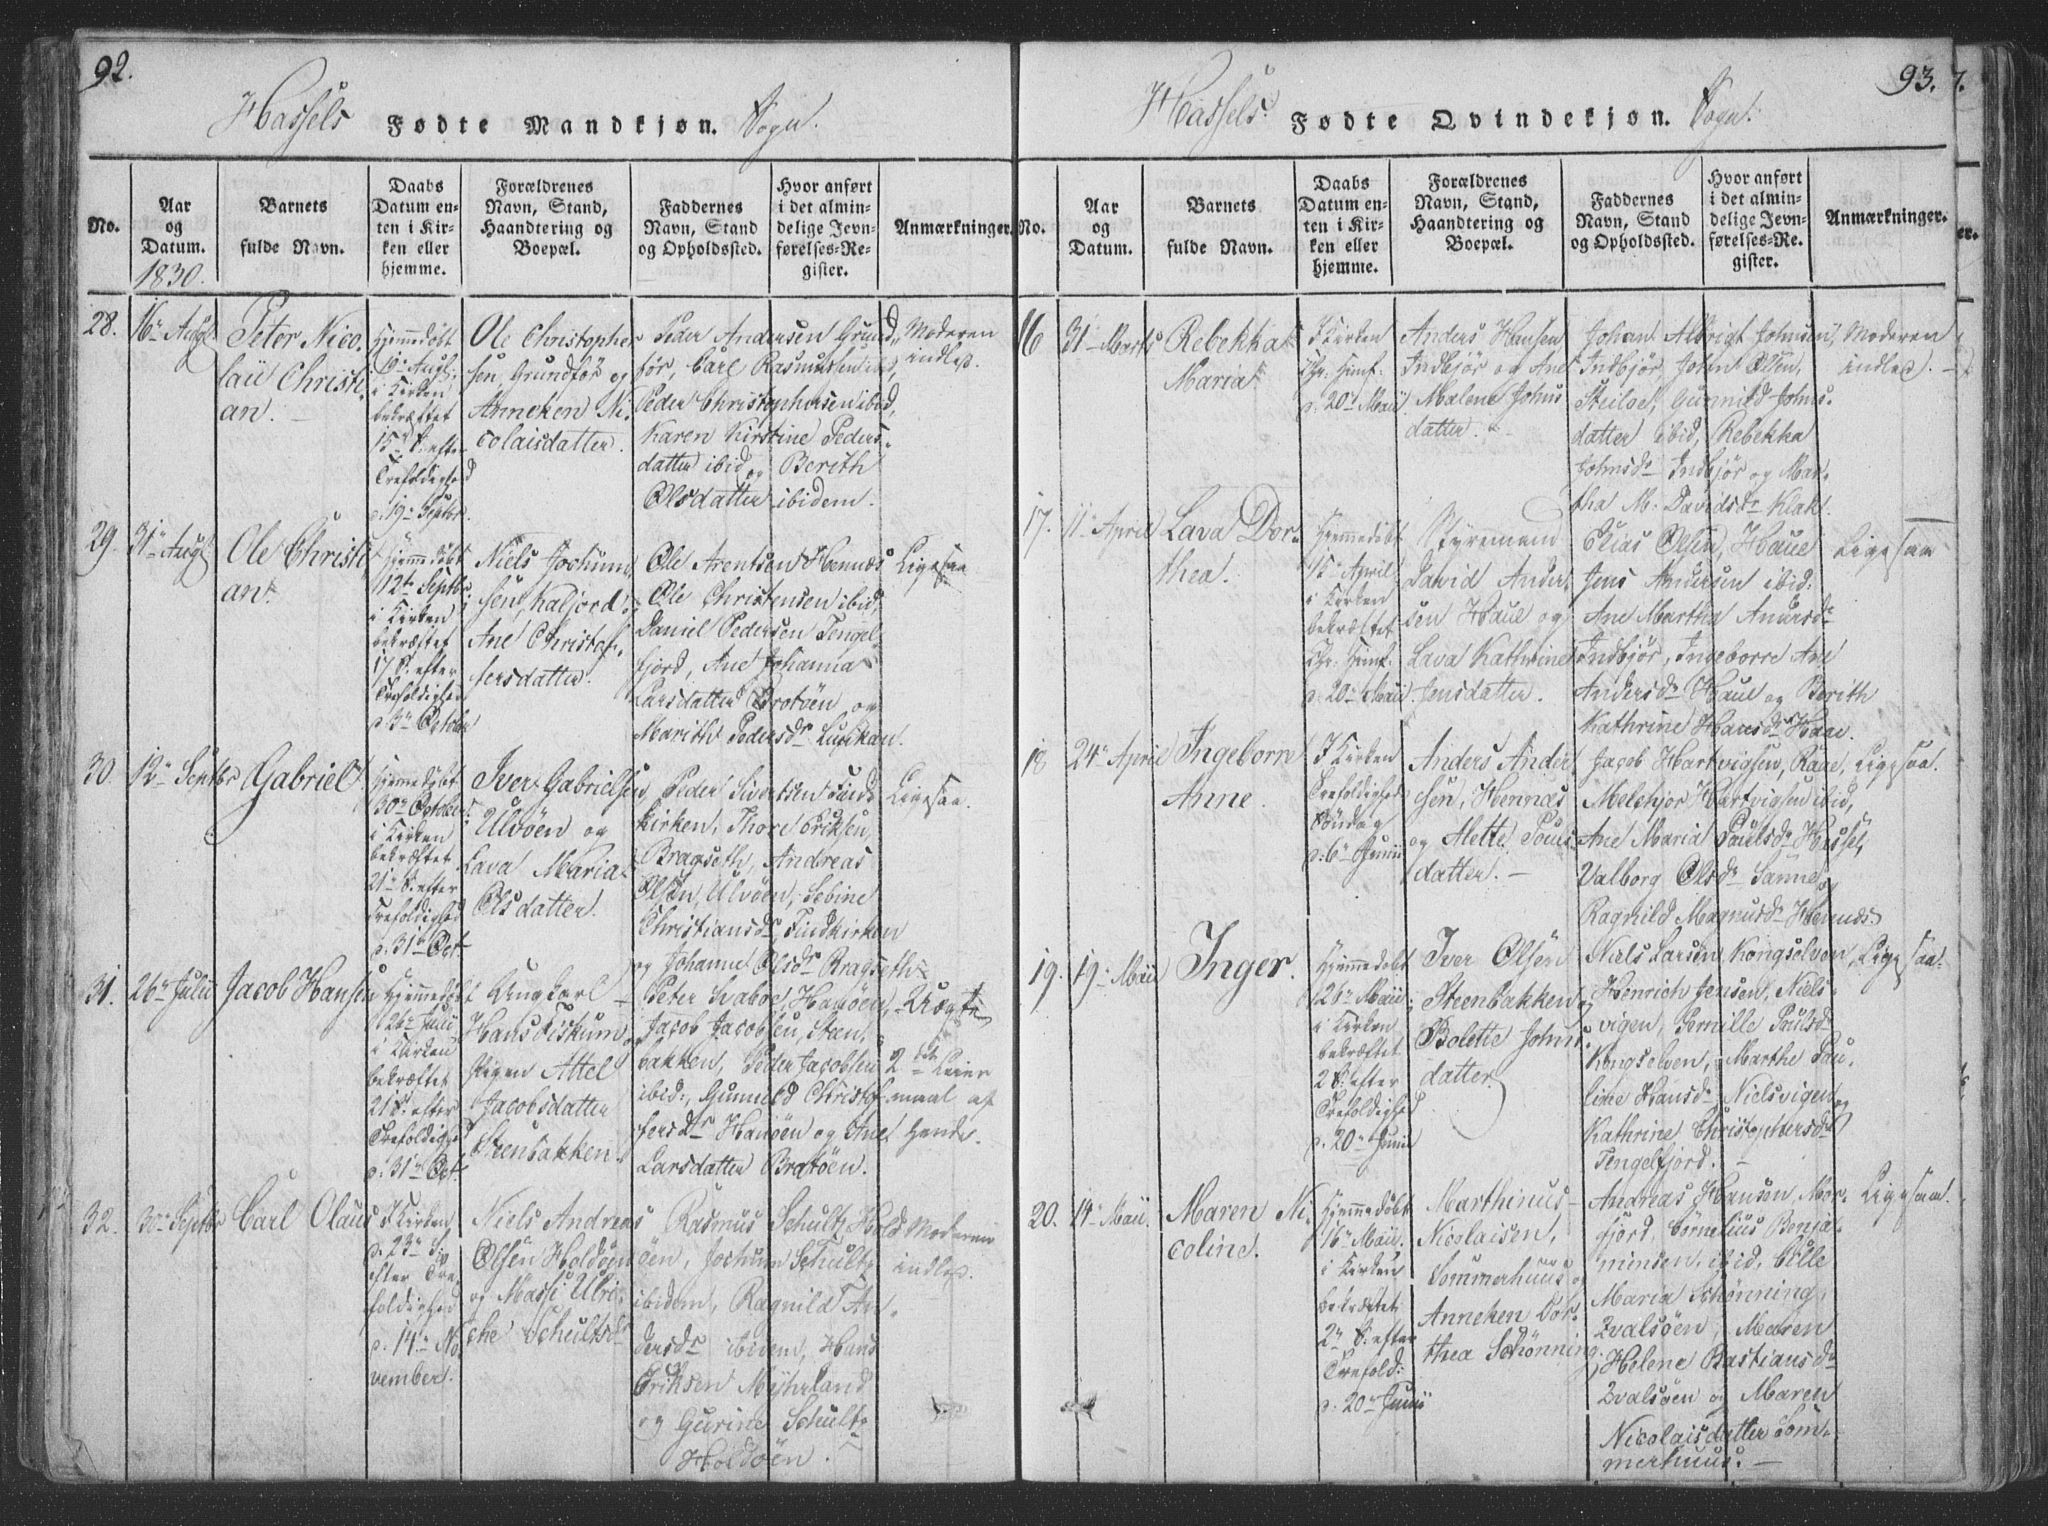 92.
Hassels Fødte Mandkjøn. Sogn.
No.
Aar og Datum.
Barnets fulde Navn.
Daabs Datum enten i Kirken eller hjemme.
Forældrenes Navn, Stand, Haandtering og Boepæl.
Faddernes Navn, Stand og Opholdssted.
Hvor anført i det almindelige Jevnførelses-Register.
Anmærkninger.
1830.
28.
16de Augt
Peter Nico-
lai Christi-
an.
Hjemmedøbt
i Kirken
bekræftet
15de S. efter
Trefoldighed
d. 19de Septbr.
Ole Christopher-
sen, Grundfør og
Anneken Ni-
colaisdatter.
Peder Andersen Grund-
før, Carl Rasmussen ibid,
Peder Christophersen ibid,
Karen Kirstine Peders-
datter ibid og Berith
Olsdatter ibidem.
Moderen
indles.
29.
31te Augt
Ole Christi-
an.
Hjemmedøbt
12te Septbr.
i Kirken
bekræftet
17 S. efter
Trefoldighed
d. 3de October
Niels Jochum-
sen, Kaljord og
Ane Christof-
fersdatter.
Ole Arentsen Hennæs
Ole Christensen ibid,
Daniel Pedersen Tengel-
fjord, Ane Johanna
Larsdatter Brotøen og
Marith Pedersdr
Ligesaa
30.
12te Septbr
Gabriel
Hjemmedøbt
i Kirken
bekræftet
21de S. efter
Trefoldighed
d. 31te Oct.
Iver Gabrielsen
Ulvøen og
Lava Maria
Olsdatter.
Peder Sivertsen Find-
kirken, Thore Eriksen,
Bragseth, Andreas
Olsen, Ulvøen, Sebine
Christiansdr, Findkirken
og Johanne Olsdr Bragseth
Ligesaa.
31.
26de Julii
Jacob Hansen
Hjemmedøbt
26de Julii
i Kirken
bekræftet
21 S. efter
Trefoldighed
d. 31te Oct.
Ungkarl
Hans Fiskum og
Pigen Attel
Jacobsdatter
Steenbakken.
Peter Svaboe, Hanøen,
Jacob Jacobsen, Steen-
bakken, Peder Jacobsen
ibid:, Gunneld Christof-
fersdr Hanøen og Ane
Larsdatter Bratøen.
Uægte
2det Leier
maal af
Hende.
32.
30te Septbr
Carl Claus
I Kirken
d. 23de S.
efter Tre-
foldighed
d. 14de No-
vember.
Niels Andreas
Olsen Holdøen
og Massi Ulri-
che Schultzdr
Rasmus Schultz Hold-
øen, Jochum Schultz
ibidem, Ragnild An-
dersdr ibidem, Hans
Eriksen Myhrland
og Gurine Schultz
Holdøen.
Moderen
indles.
93.
7.
Hassels Fødte Qvindekjøn. Sogn.
No.
Aar og Datum.
Barnets fulde Navn.
Daabs Datum enten i Kirken eller hjemme.
Forældrenes Navn, Stand, Haandtering og Boepæl.
Faddernes Navn, Stand og Opholdssted.
Hvor anført i det almindelige Jevnførelses-Register.
Anmærkninger.
er.
16
31te Marts
Rebekka
Maria
I Kirken
Chr: Himf.
d. 20de Maii
Anders Hansen
Indbjør og Ane
Malene Johns-
datter.
Johan Albrigt Johnsen
Indbjør, John Olsen,
Steiloe, Gunnild Johns-
datter ibid, Rebekka
Johnsdr Indbjør og Mar-
tha M. Davidsdr Klakk.
Moderen
indles.
17.
11te April
Lava Dor-
thea.
Hjemmedøbt
15 April
i Kirken
bekræftet
Chr. Himf.
d. 20de Maii
Styremand
David Ander-
sen Haue og
Lava Kathrine
Jensdatter.
Elias Olsen, Haue
Jens Andersen ibid:
Ane Martha Andersdr
Indbjør, Ingeborre Ane
Andersdr Haue og Berith
Kathrine Hansdr Haue.
Ligesaa
18
24de April
Ingeborre
Anne.
I Kirken
Trefoldighed
Søndag
d. 6te Junii
Anders Ander-
sen, Hennæs
og Mette Pouls-
datter.
Jacob Hartvigsen, Raae,
Melchjor Hartvigsen ibid,
Ane Maria Paulsdr Hassel,
Valborg Olsdr Sanne og
Ragnild Magnusdr Hennæs.
Ligesaa.
19.
19de Maii
Inger.
Hjemmedøbt
26de Maii
i Kirken
bekræftet
2 S. efter
Trefoldighed
d. 20de Junii
Iver Olsen
Steenbakken og
Bolette Johns-
datter.
Niels Larsen Kongselven,
Henrich Jensen, Niels-
vigen, Pernille Poulsdr
Kongselven, Marthe Pau-
line Hansdr Nielsvigen og
Kathrine Christophersdr
Tengelfjord.
Ligesaa.
20.
14de Maii.
Maren Ni-
coline.
Hjemmedøbt
16de Maii.
i Kirken
bekræftet
2de S. efter
Trefold:
d. 20de Junii
Marthinus
Nicolaisen,
Sommerhuus og
Anneken Dor-
thea Schønning.
Andreas Hansen, Mor-
fjord, Cornelius Benja-
minsen, ibid, Cille
Maria Schønning,
Qvalsøen, Maren
Helene Bastiansdr
Qvalsøen og Maren
Nicolaisdatter Som-
merhuus.
Ligesaa.